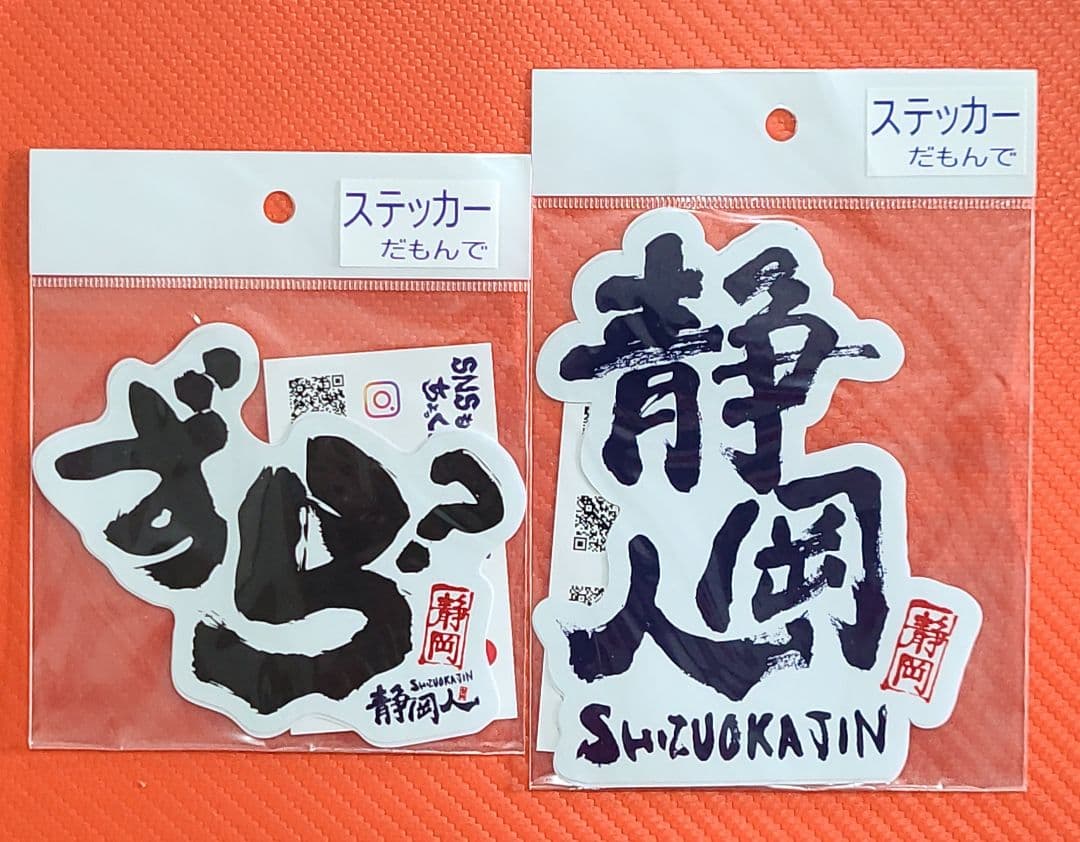 ステッカー
だもんで
SNSも
ちょく
ずら?
静岡
SHIZUOKAJIN
静岡人
ステッカー
だもんで
静岡人
静岡
SHIZUOKAJIN